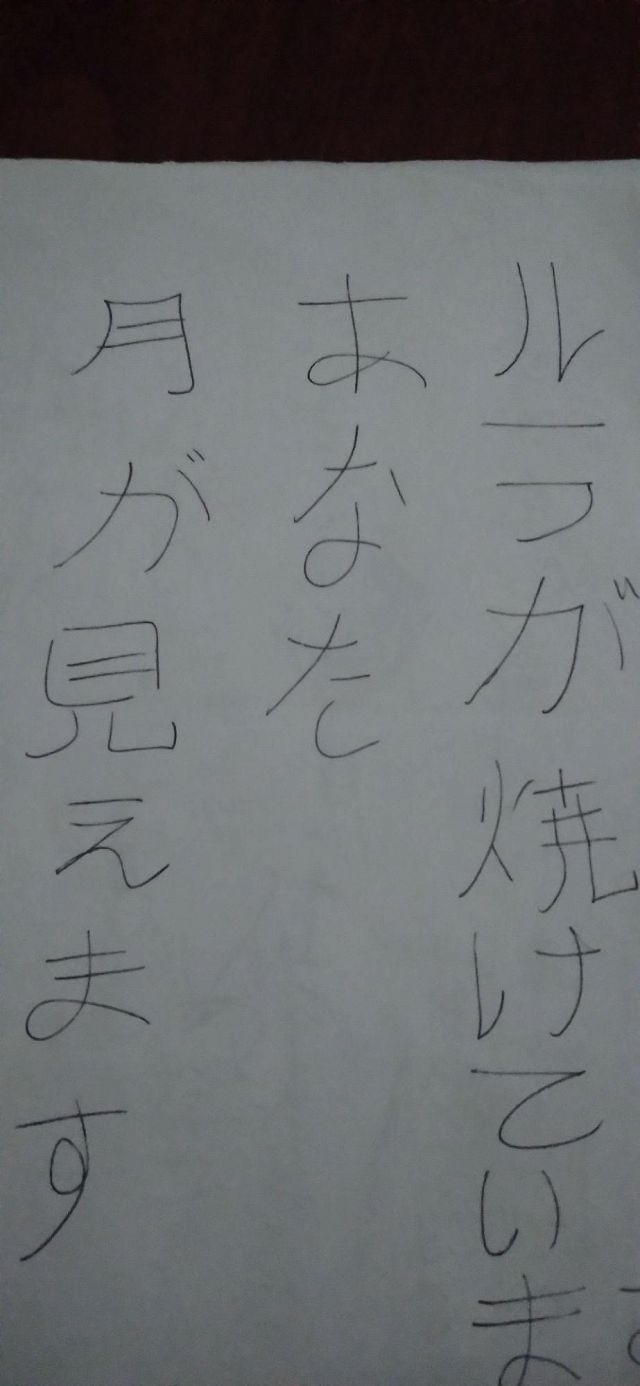 ルラが焼けていま
あなた
月が見えます